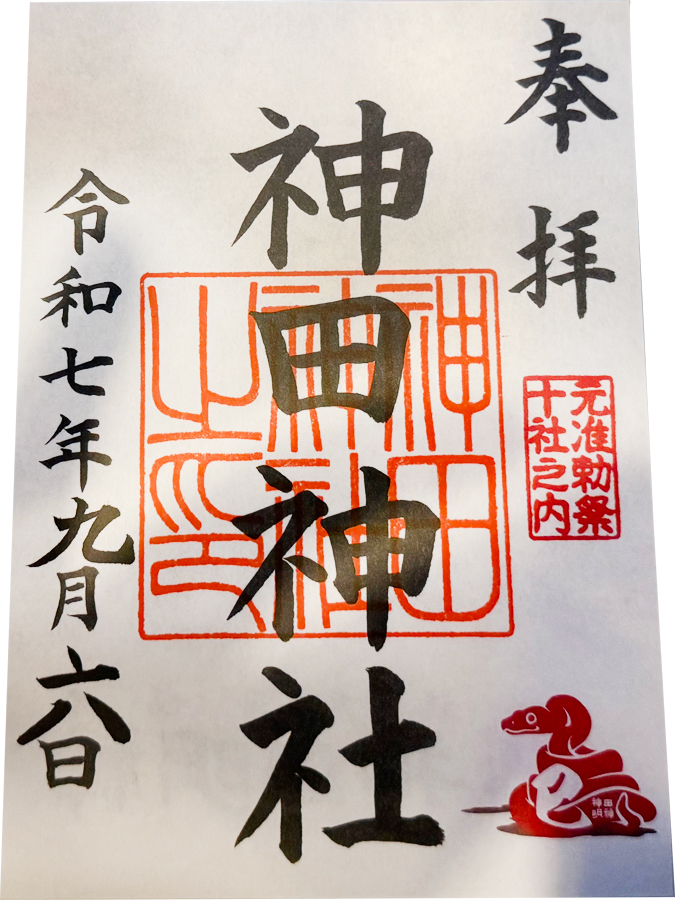 奉拝
元准勅祭
十社之内
神田神社
神田
神社
之印
令和七年九月六日
巳
神田
明神